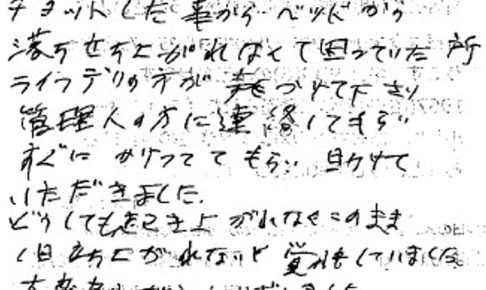 チョットした事からベッドから
落ち立ち上がれなくて困っていた所
ライフデリの方が気づけて下さり
管理人の方に連絡してもらい
すぐに かけつててもらい 助けて
いただきました。
どうしても起き上がれなくこのまま
1日立ち上がれないと覚悟していました